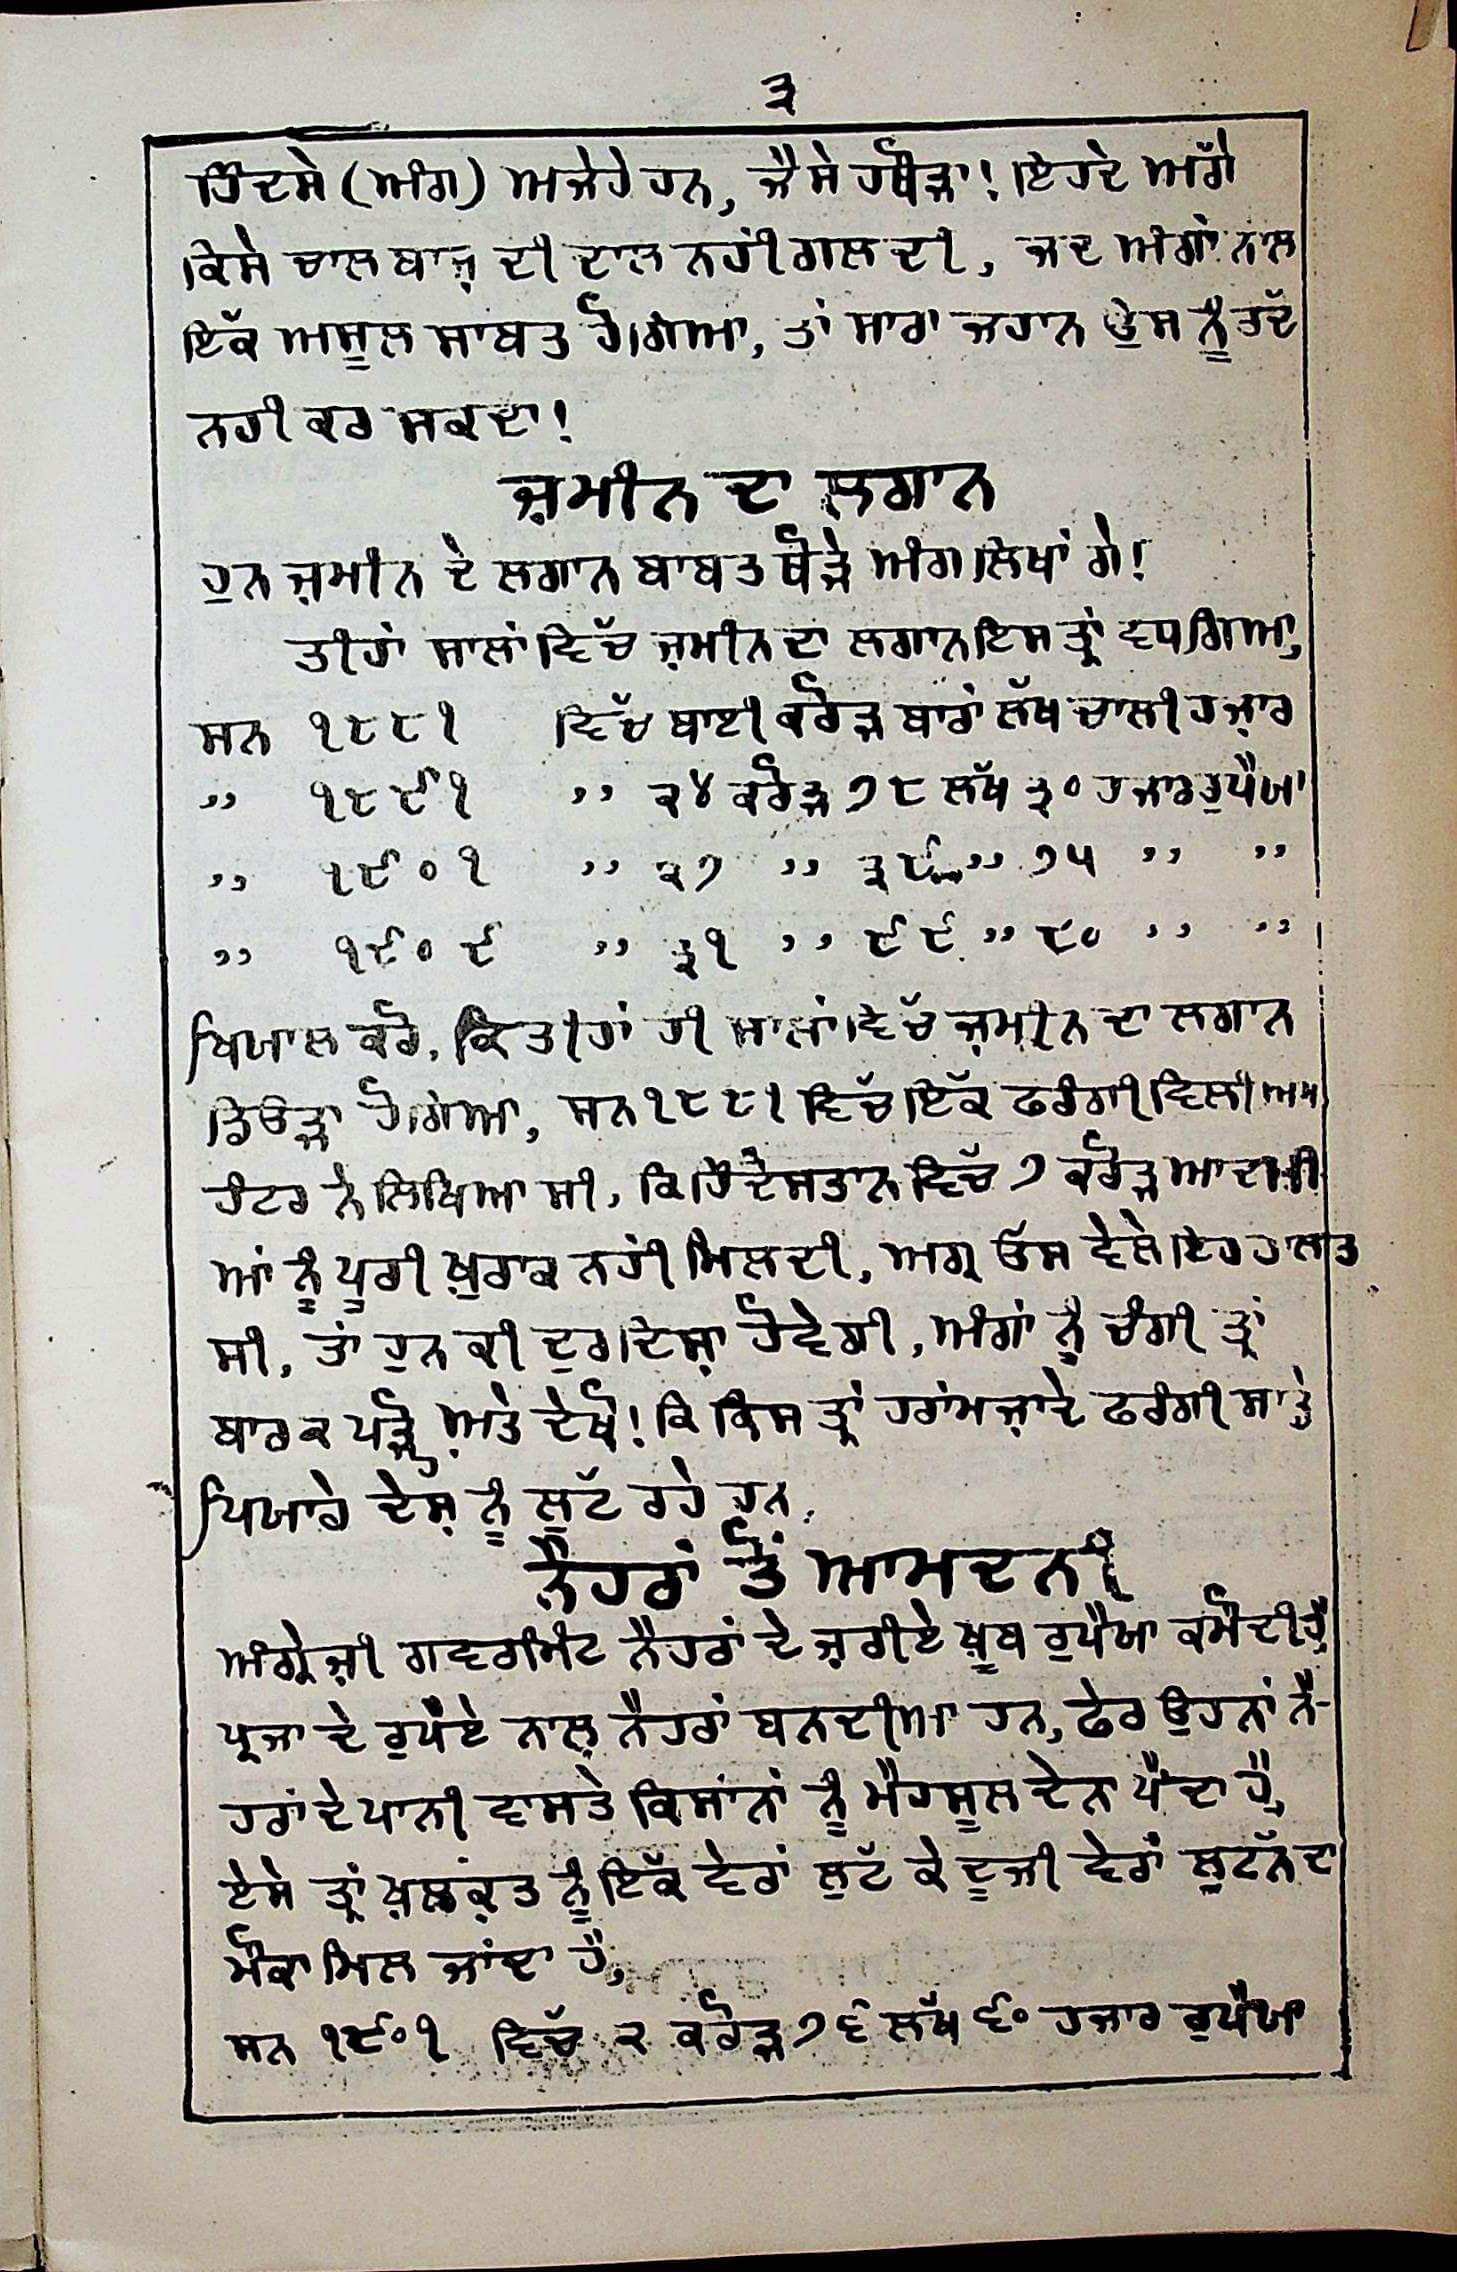 ੩
ਹਿੰਦਸੇ (ਅੰਗ) ਅਜੇਹੇ ਹਨ, ਜੈਸੇ ਹਥੌੜਾ! ਇਹਦੇ ਅੱਗੇ
ਕਿਸੇ ਚਾਲਬਾਜ਼ ਦੀ ਦਾਲ ਨਹੀਂ ਗਲਦੀ, ਜਦ ਅੰਗਾਂ ਨਾਲ
ਇੱਕ ਅਸੂਲ ਸਾਬਤ ਹੋ ਗਿਆ, ਤਾਂ ਸਾਰਾ ਜਹਾਨ ਉਸ ਨੂੰ ਰੱਦ
ਨਹੀ ਕਰ ਸਕਦਾ!
ਜ਼ਮੀਨ ਦਾ ਲਗਾਨ
ਹੁਨ ਜ਼ਮੀਨ ਦੇ ਲਗਾਨ ਬਾਬਤ ਥੋੜੇ ਅੰਗ ਲਿਖਾਂ ਗੇ!
ਤੀਹਾਂ ਸਾਲਾਂ ਵਿੱਚ ਜ਼ਮੀਨ ਦਾ ਲਗਾਨ ਇਸ ਤ੍ਰਾਂ ਵਧ ਗਿਆ,
ਸਨ ੧੮੮੧ ਵਿੱਚ ਬਾਈ ਕਰੋੜ ਬਾਰਾਂ ਲੱਖ ਚਾਲੀ ਹਜ਼ਾਰ
,, ੧੮੯੧ ,, ੨੪ ਕਰੋੜ ੭੮ ਲੱਖ ੩੦ ਹਜਾਰ ਰੁਪੈਯਾ
,, ੧੯੦੧ ,, ੨੭ ,, ੩੯ ,, ੭੫ ,, ,,
,, ੧੯੦੯ ,, ੩੧ ,, ੯੯ ,, ੮੦ ,, ,,
ਖਿਯਾਲ ਕਰੋ, ਕਿ ਤੀਹਾਂ ਹੀ ਸਾਲਾਂ ਵਿੱਚ ਜ਼ਮੀਨ ਦਾ ਲਗਾਨ
ਡਿਓੜਾ ਹੋ ਗਿਆ, ਸਨ ੧੮੮੧ ਵਿੱਚ ਇੱਕ ਫਰੰਗੀ ਵਿਲੀਅਮ
ਹੰਟਰ ਨੇ ਲਿਖਿਆ ਸੀ, ਕਿ ਹਿੰਦੋਸਤਾਨ ਵਿੱਚ ੭ ਕਰੋੜ ਆਦਮੀ
ਆਂ ਨੂੰ ਪੂਰੀ ਖ਼ੁਰਾਕ ਨਹੀਂ ਮਿਲਦੀ, ਅਗ੍ਰ ਓਸ ਵੇਲੇ ਇਹ ਹਾਲਤ
ਸੀ, ਤਾਂ ਹੁਨ ਕੀ ਦੁਰਦਿਸ਼ਾ ਹੋਵੇਗੀ, ਅੰਗਾਂ ਨੂੰ ਚੰਗੀ ਤ੍ਰਾਂ
ਬਾਰਕ ਪੜ੍ਹੋ ਅਤੇ ਦੇਖੋ! ਕਿ ਕਿਸ ਤ੍ਰਾਂ ਹਰਾਂਮਜ਼ਾਦੇ ਫਰੰਗੀ ਸਾਡੇ
ਪਿਯਾਰੇ ਦੇਸ਼ ਨੂੰ ਲੁੱਟ ਰਹੇ ਹਨ,
ਨੈਹਰਾਂ ਤੋਂ ਆਮਦਨੀ
ਅੰਗ੍ਰੇਜ਼ੀ ਗਵਰਮਿੰਟ ਨੈਹਰਾਂ ਦੇ ਜ਼ਰੀਏ ਖ਼ੂਬ ਰੁਪੈਯਾ ਕਮੌਂਦੀ ਹੈ,
ਪ੍ਰਜਾ ਦੇ ਰੁਪੈਏ ਨਾਲ ਨੈਹਰਾਂ ਬਨਦੀਆਂ ਹਨ, ਫੇਰ ਉਹਨਾਂ ਨੈ-
ਹਰਾਂ ਦੇ ਪਾਨੀ ਵਾਸਤੇ ਕਿਸਾਂਨਾਂ ਨੂੰ ਮੈਹਸੂਲ ਦੇਨਾ ਪੈਂਦਾ ਹੈ,
ਏਸੇ ਤ੍ਰਾਂ ਖ਼ਲਕ਼ਤ ਨੂੰ ਇੱਕ ਵੇਰਾਂ ਲੁੱਟ ਕੇ ਦੂਜੀ ਵੇਰਾਂ ਲੁੱਟਨ ਦਾ
ਮੌਕਾ ਮਿਲ ਜਾਂਦਾ ਹੈ,
ਸਨ ੧੯੦੧ ਵਿੱਚ ੨ ਕਰੋੜ ੭੬ ਲੱਖ ੬੦ ਹਜਾਰ ਰੁਪੈਯਾ